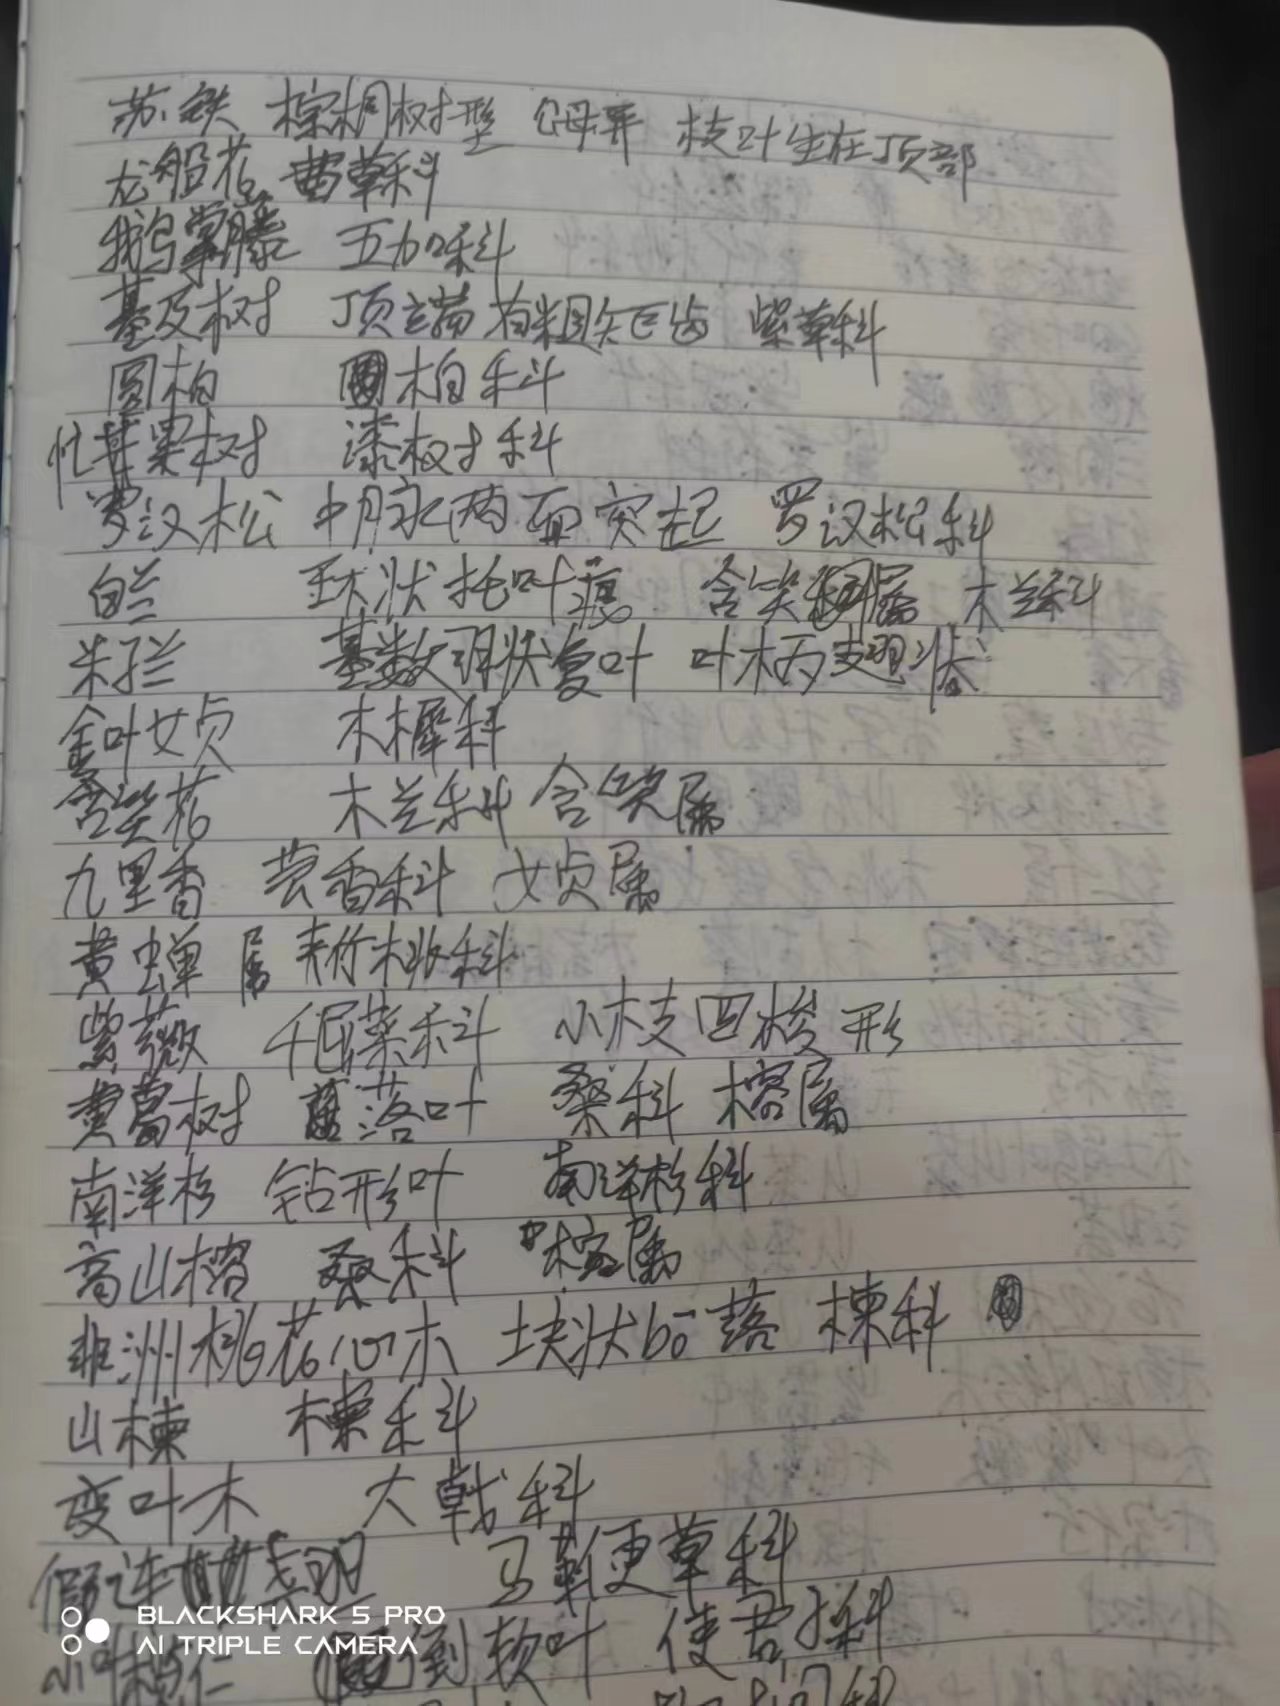 苏铁 棕榈树型 公母异 枝叶生在顶部
龙船花 茜草科
鹅掌藤 五加科
基及树 顶端有粗短锯齿 紫草科
圆柏 柏科
忙苹果树 漆树科
罗汉松 中脉两面突起 罗汉松科
白兰 环状托叶痕 含笑属 木兰科
米仔兰 基数羽状复叶 叶柄翅状
金叶女贞 木犀科
含笑花 木兰科 含笑属
九里香 芸香科 女贞属
黄蝉属 夹竹桃科
紫薇 千屈菜科 小枝四棱形
黄葛树 落叶 桑科 榕属
南洋杉 钻形叶 南洋杉科
高山榕 桑科 榕属
非洲桃花心木 块状bō落 楝科
山楝 楝科
变叶木 大戟科
假连翘 马鞭草科
小叶榄仁 倒软叶 使君子科
BLACKSHARK 5 PRO
AI TRIPLE CAMERA